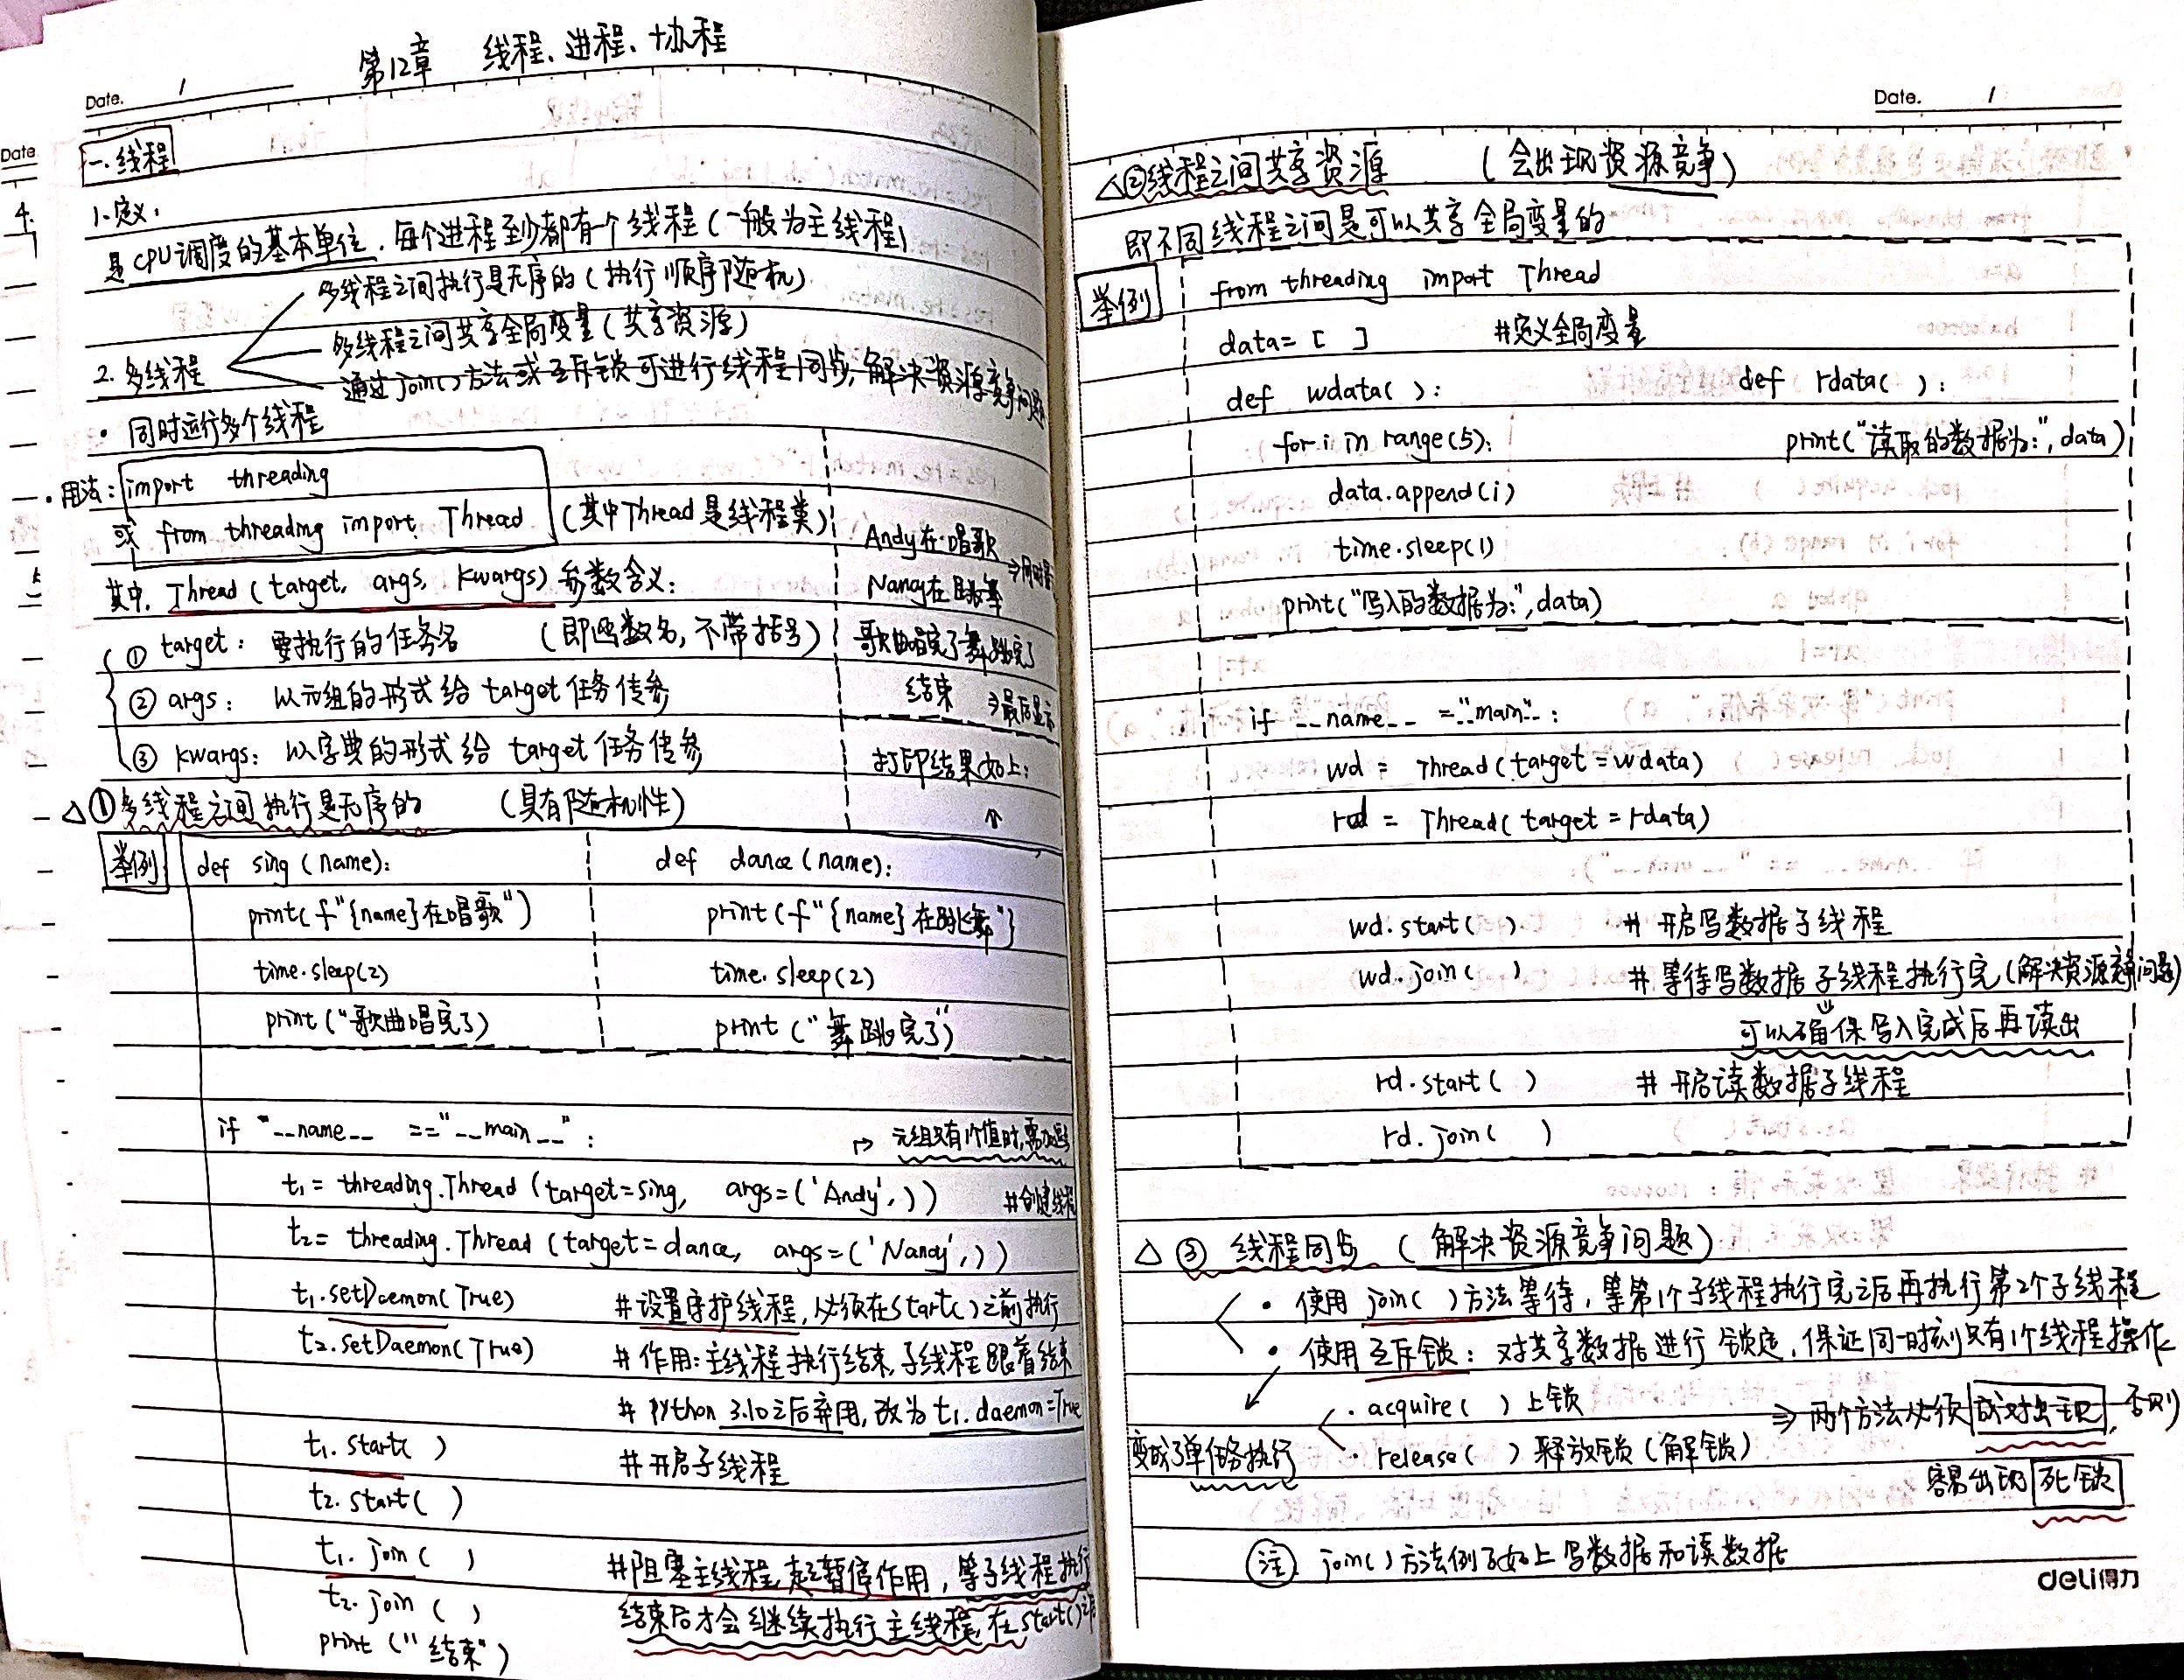 第12章 线程、进程、协程
Date. /
一.线程
1.定义:
是CPU调度的基本单位,每个进程至少都有一个线程(一般为主线程)
多线程之间执行是无序的(执行顺序随机)
多线程之间共享全局变量(共享资源)
2.多线程
通过join()方法或互斥锁可进行线程同步,解决资源竞争问题
· 同时运行多个线程
· 用法: import threading
或 from threading import Thread (其中Thread是线程类)
其中, Thread (target, args, kwargs) 参数含义:
① target: 要执行的任务名 (即函数名,不带括号)
② args: 以元组的形式给 target 任务传参
③ kwargs: 以字典的形式给 target 任务传参
Andy在唱歌
Nancy在跳舞 ⇒同时显示
歌曲唱完了舞跳完了
结束 ⇒最后显示
打印结果如上:
↑
△①多线程之间执行是无序的 (具有随机性)
举例
def sing (name): def dance (name):
print( f"{name}在唱歌") print (f"{name}在跳舞"}
time.sleep(2) time.sleep(2)
print ("歌曲唱完了) print ("舞跳完了")
if "__name__ =="__main__":
↱ 元组只有1个值时,需加逗号
t₁= threading.Thread (target=sing, args=('Andy',)) #创建线程
t₂= threading.Thread (target=dance, args=('Nancy',))
t₁.setDaemon(True) #设置守护线程,必须在start()之前执行
t₂.setDaemon(True) #作用:主线程执行结束,子线程跟着结束
# Python 3.10之后弃用,改为t₁.daemon=True
t₁. start( ) #开启子线程
t₂. start( )
t₁. join ( ) #阻塞主线程,起暂停作用,等子线程执行
t₂. join ( ) 结束后才会继续执行主线程,在start()之后
print ("结束")
Date. /
△②线程之间共享资源 (会出现资源竞争)
即不同线程之间是可以共享全局变量的
举例
from threading import Thread
data= [ ] #定义全局变量
def wdata( ): def rdata( ):
for i in range(5): print("读取的数据为:",data)
data.append(i)
time.sleep(1)
print("写入的数据为:",data)
if __name__ =="__main"__:
wd = Thread(target=wdata)
rd = Thread(target=rdata)
wd.start( ) # 开启写数据子线程
wd.join( ) # 等待写数据子线程执行完(解决资源竞争问题)
可以确保写入完成后再读出
rd.start( ) # 开启读数据子线程
rd.join( )
△ ③ 线程同步 (解决资源竞争问题)
· 使用 join( )方法等待,等第1个子线程执行完之后再执行第2个子线程
· 使用互斥锁: 对共享数据进行锁定,保证同一时刻只有1个线程操作
· acquire( )上锁 ⇒ 两个方法必须成对出现,否则
变成了单任务执行 · release( )释放锁(解锁)
容易出现死锁
注 join()方法例子如上写数据和读数据
deli得力
Date
4.